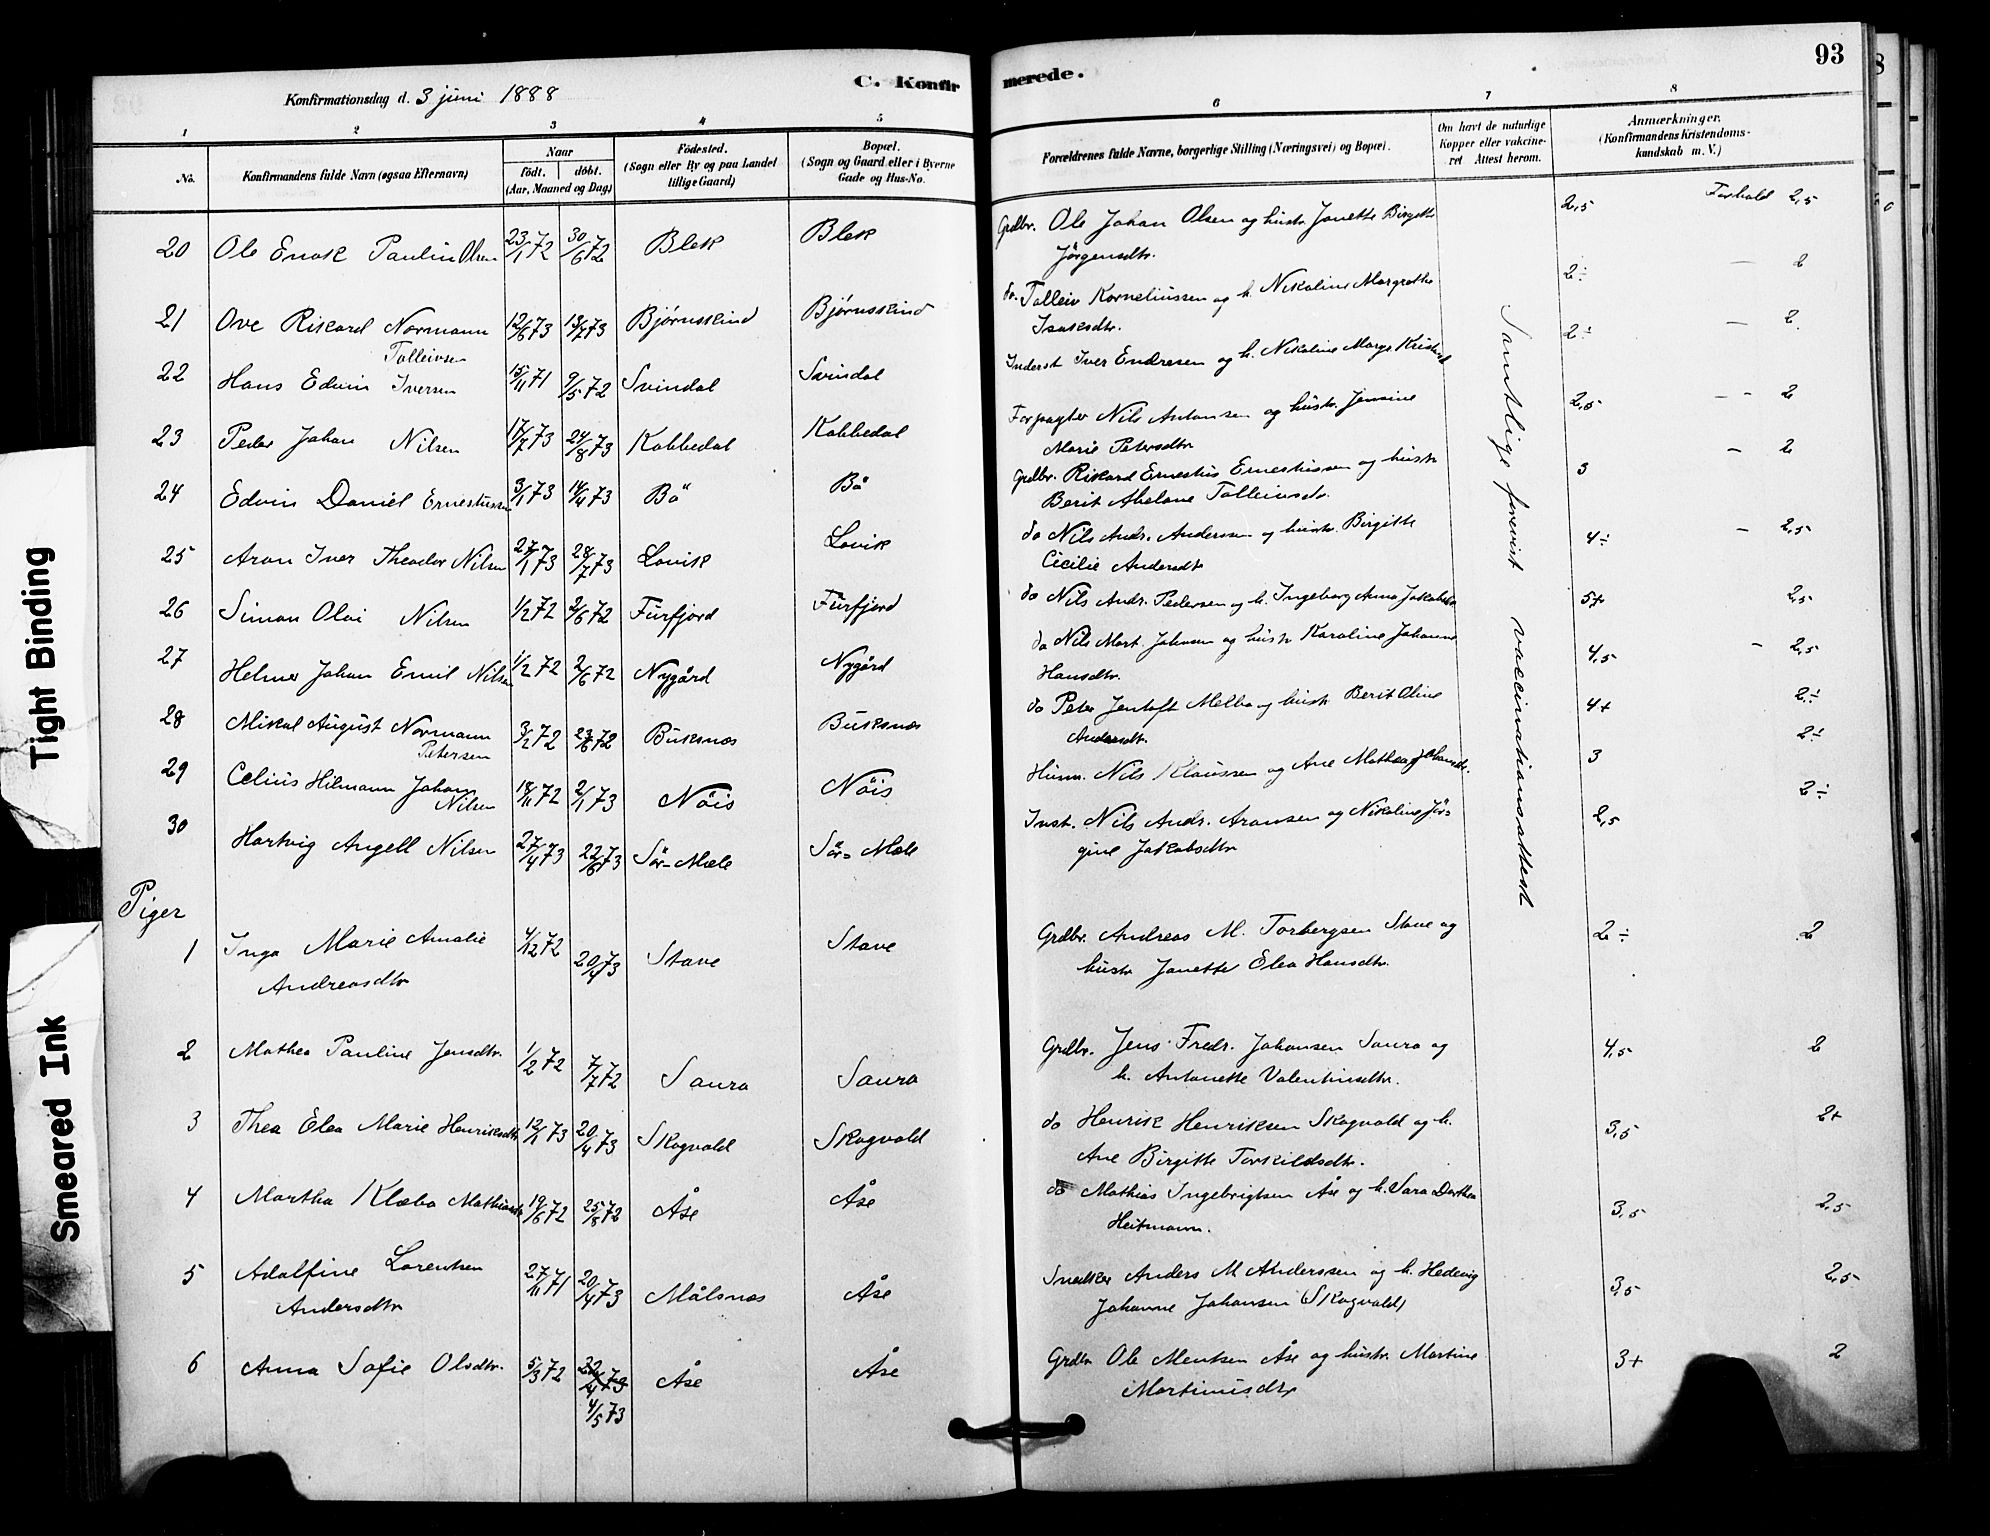 Tight Binding
Smeared Ink
C. Konfirmerede.
93
Konfirmationsdag d. 3 juni 1888
1 2 3 4 5 6 7 8
No. Konfirmandens fulde Navn (ogsaa Efternavn)
Naar födt. döbt. (Aar, Maaned og Dag)
Födested. (Sogn eller By og paa Landet tillige Gaard)
Bopæl. (Sogn og Gaard eller i Byerne Gade og Hus-No.
Forældrenes fulde Navne, borgerlige Stilling (Næringsvei) og Bopæl.
Om havt de naturlige Kopper eller vakcineret Attest herom.
Anmærkninger. (Konfirmandens Kristendomskundskab m. V.)
Samtlige forevist vaccinationsattest
20 Ole Enok Paulin Olsen 23/1 72 30/6 72 Blek Blek Grdbr. Ole Johan Olsen og hustr. Janette Birgitte 2,5 Forhold 2,5
Jörgensdtr.
21 Ove Rikard Normann 12/6 73 13/7 73 Bjørnskind Bjørnskind do. Tolleiv Korneliussen og h. Nikoline Margrethe 2÷ – 2
Tolleivsen Isaksdtr.
22 Hans Edvin Iversen 15/11 71 9/5 72 Svindal Svindal Inderst Iver Endresen og h. Nikoline Marga 2÷ – 2
23 Peder Johan Nilsen 17/7 73 24/8 73 Kobbedal Kobbedal Forpagter Nils Antonsen og hustr. Jensine 2,5 – – 2
Marie Petersdtr
24 Edvin Daniel Ernestussen 3/1 73 14/4 73 Bö Bö Grdbr. Rikard Ernestus Ernestussen og hustr 3 – 2
Berit Abelone Tolleivsdr.
25 Aron Iver Theodor Nilsen 27/1 73 28/7 73 Lovik Lovik do Nils Andr. Anderssen og hustr. Birgitte 4÷ – 2,5
Cicilie Andersdtr
26 Simon Olai Nilsen 1/2 72 2/6 72 Fürfjord Fürfjord do Nils Andr. Pedersen og h. Ingeborg Anna Jakobsdtr 5+ 2,5
27 Helmer Johan Emil Nilsen 1/2 72 2/6 72 Nygård Nygård do Nils Mart. Johnsen og hustr Karoline Johanne 4,5 – 2,5
Hansdtr.
28 Mikal August Normann 3/2 72 23/6 72 Buksnæs Buksnæs do Peter Jentoft Melbo og hustr Berit Oline 4+ 2÷
Petersen Andersdtr.
29 Celius Hilmann Johan 18/11 72 2/1 73 Nöis Nöis Husm. Nils Klaussen og Ane Mathea Johansdtr. 3 2÷
Nilsen
30 Hartvig Angell Nilsen 27/4 73 22/6 73 Sör-Mæle Sör-Mæle Inst. Nils Andr. Aronsen og Nikoline Jör- 2,5 2÷
gine Jakobsdtr
Piger
1 Inga Marie Amalie 4/12 72 20/4 73 Stave Stave Grdbr. Andreas M. Torbergsen Stave og 2÷ 2
Andreasdtr hustr Janette Elea Hansdtr.
2 Mathea Pauline Jensdtr. 1/2 72 7/7 72 Saura Saura Grdbr. Jens Fredr. Johansen Saura og 4,5 2
h. Antonette Valentinsdtr.
3 Thea Elea Marie Henriksdtr 12/1 73 20/4 73 Skogvold Skogvold do Henrik Henriksen Skogvold og h. 3,5 2+
Ane Birgitte Torkildsdtr.
4 Martha Klæbo Mathiasdtr 19/6 72 25/8 72 Åse Åse do Mathias Ingebrigtsen Åse og h. Sara Dorthea 3,5 2,5
Heitmann.
5 Adolfine Lorentsen 27/11 71 20/4 73 Målsnæs Åse Snedker Anders M Anderssen og h. Hedevig 3,5 2,5
Andersdtr Johanne Johansen (Skogvold)
6 Anna Sofie Olsdtr. 5/3 72 22/4 73 Åse Åse Grdbr Ole Mentsen Åse og hustr. Martine 3+ 2
4/5 73 Martinusdtr